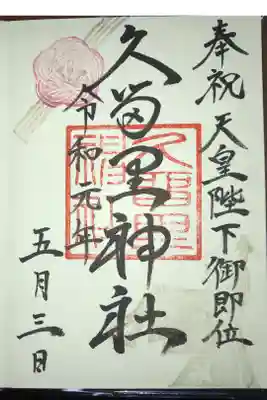 奉祝 天皇陛下御即位
久留里神社
令和元年
五月三日